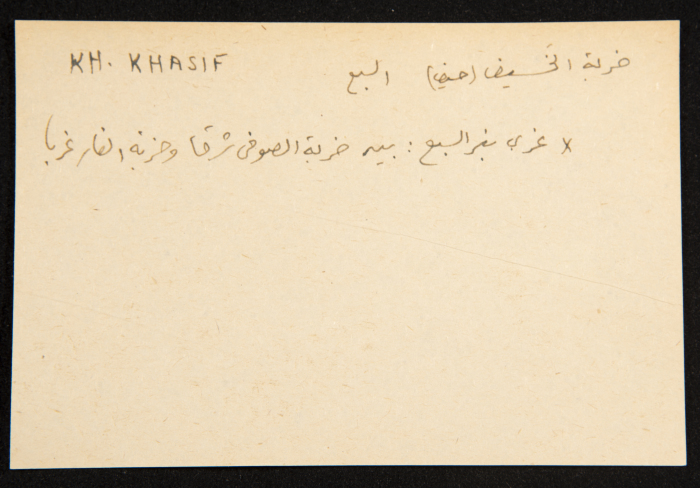 KH. KHASIF خربة الخسيف (حنيف) السبع
x غربي بئر السبع : بين خربة الصوفى شرقا وخربة الفار غربا